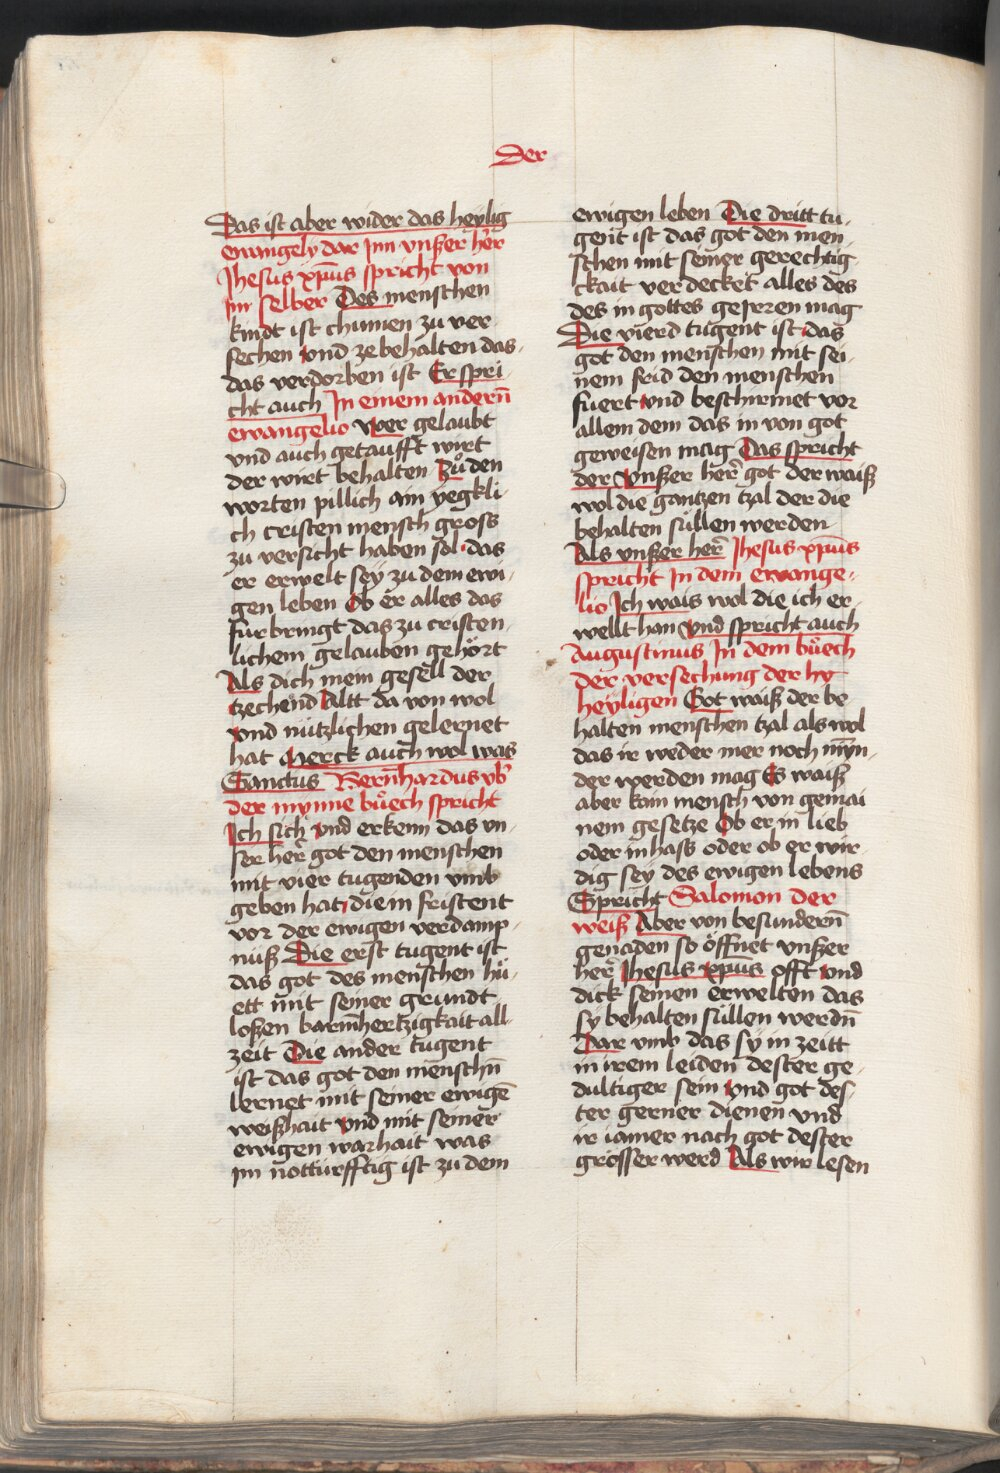 Der
Das ist aber wider das heylig
ewangely dar Jnn vnßer her̃
Jhesus xp̄us spricht von
jm selber Des menschen
kindt ist chumen zu ver
sechen vnd ze behalten das
das verdorben ist Er spri
cht auch Jn einem andern̄
ewangelio wer gelaubt
vnd auch getaufft wirt
der wirt behalten Zů den
worten pillich ain yegkli
ch cristen mensch gross
zu versicht haben sol das
er erwelt sey zu dem ewi
gen leben Ob er alles das
fur bringt das zu cristen
lichem gelauben gehört
Als dich mein gesell der
tzechend Altt da von wol
vnd nützlichen gelernet
hat Merck auch wol was
Sanctus Bernhardus vb̄
der mynne bůech spricht
Jch sich vnd erkenn das vn
ser her̃ got den menschen
mit vier tugenden vmb
geben hat die in fristent
vor der ewigen verdamp
nüß Die erst tugent ist
das got des menschen hü
ett mit seiner grundt
loßen barmhertzigkait all
zeit Die ander tugent
ist das got den menschn̄
lernet mit seiner ewigē
weißhait vnd mit seiner
ewigen warhait was
im notturfftig ist zu dem
ewigen leben Die dritt tu
gent ist das got den men
schen mit seiner gerechtig
ckait verdecket alles des
des in gottes geirren mag
Die vierd tugent ist das
got den menschen mit sei
nem frid den menschen
fuert vnd beschirmet vor
allem dem das in von got
geweisen mag Das spricht
der vnßer her̃ got der waiß
wol die gantzen tzal der die
behalten süllen werden
Als vnßer her̃ Jhesus xp̄us
spricht Jn dem ewange
lio Jch wais wol die ich er
wellt han vnd spricht auch
Augustinus Jn dem bůech
der versechung der hy
heyligen Got waiß der be
halten menschen tzal als wol
das ir weder mer noch myn
der werden mag Es waiß
aber kain mensch von gemai
nem gesetze Ob er in lieb
oder in hass oder ob er wir
dig sey des ewigen lebens
Spricht Salomon der
weiß Aber von besundern̄
genaden so öffnet vnßer
her̃ Jhesus xp̄us offt vnd
dick seinen erwelten das
sy behalten süllen werdn̄
Dar vmb das sy in zeitt
in irem leiden dester ge
dultiger sein vnd got des
ter gerner dienen vnd
ir iamer nach got dester
grösser werd Als wir lesen